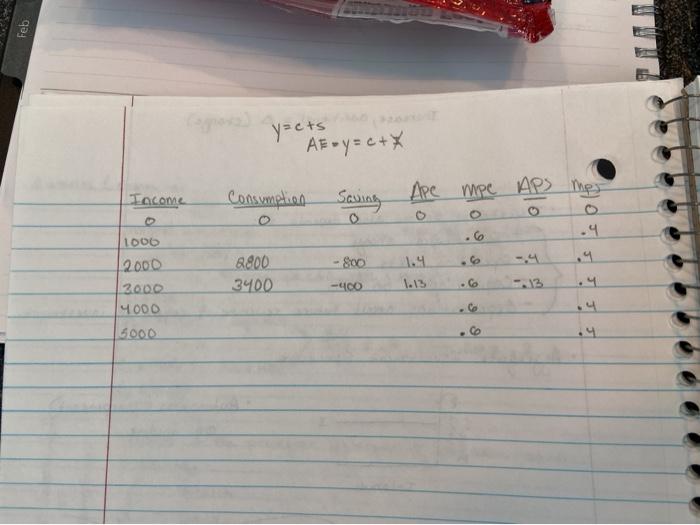 Feb
y=c+s
AE=y=c+X
Income Consumption Saving Apc mpc APS mps
0 0 0 0 0 0 0
1000 .6 .4
2000 2800 -800 1.4 .6 -.4 .4
3000 3400 -400 1.13 .6 -.13 .4
4000 .6 .4
5000 .6 .4